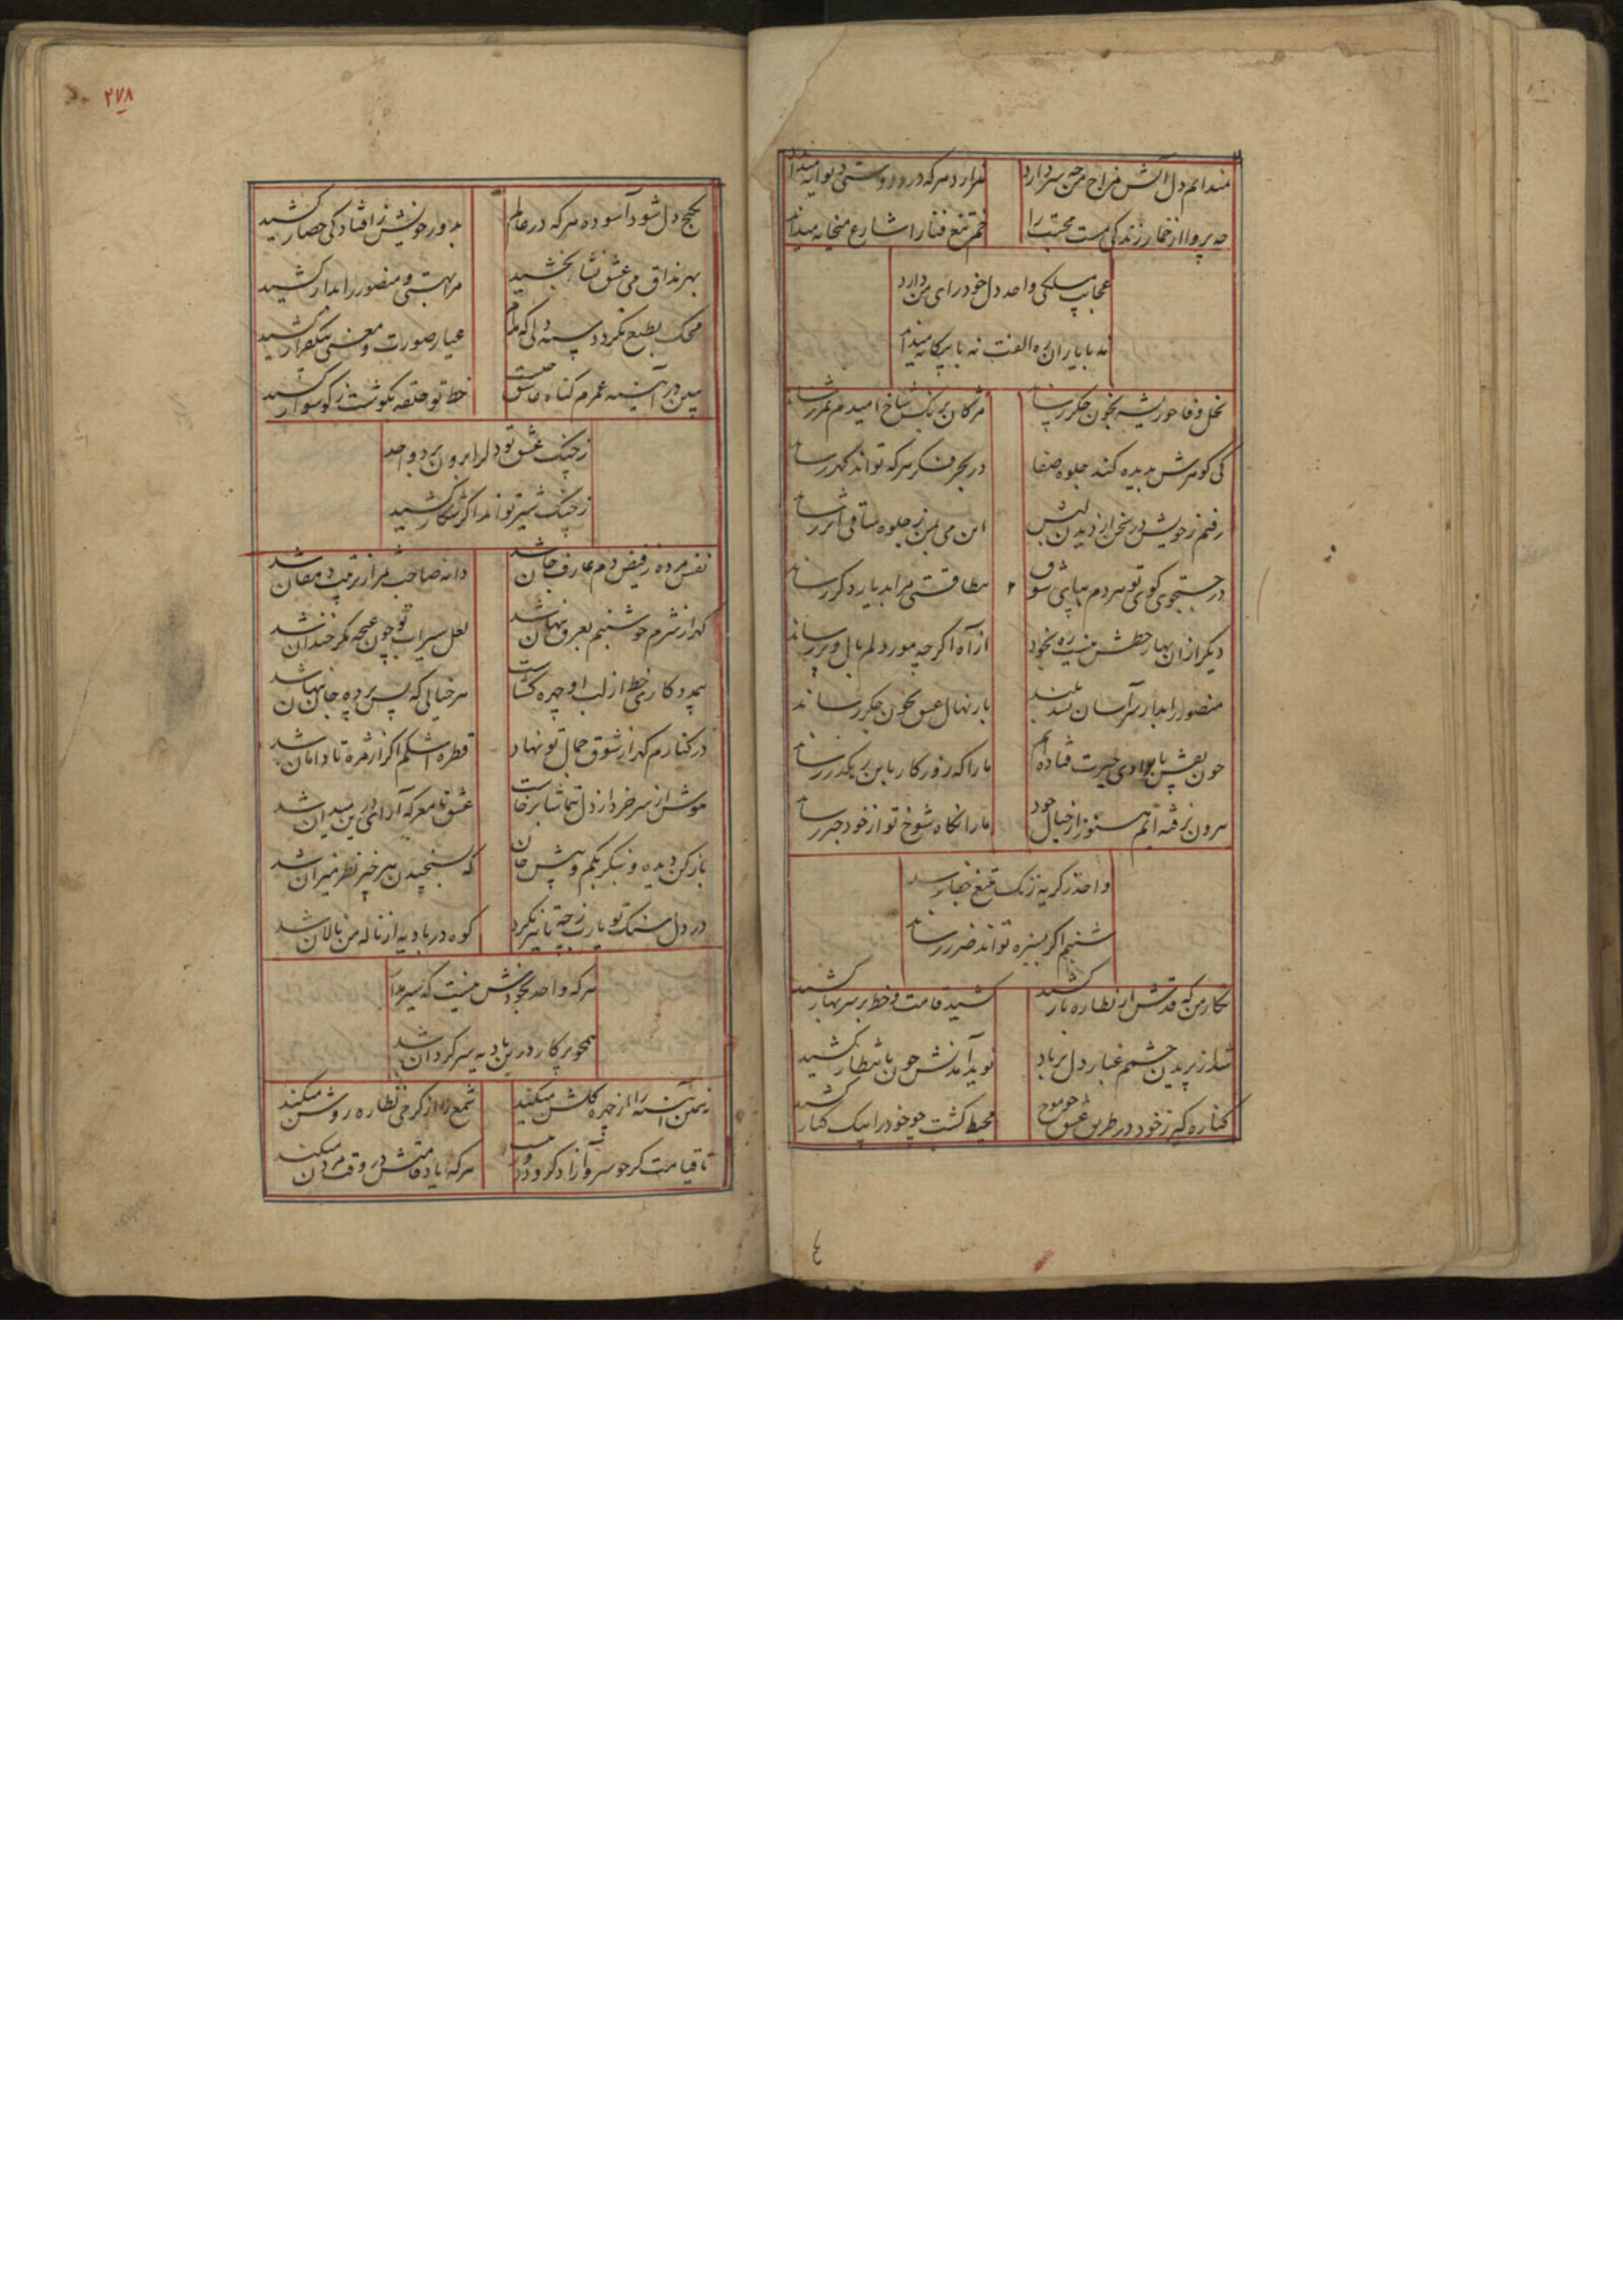 ندانم دل آتش مزاج من چه سر دارد
ندارد هرکه در دوستی دیوانه میداند
چه پروا از خمار زندگی مست محبت را
خم تیغ فنا را شارع میخانه میداند
عجایب مسلکی واحد دل خودرای من دارد
نه با یاران ره الفت نه با بیگانه میداند
نخل وفا چو ریشه بخون جگر رساند
مژگان برنگ شاخ امیدم ثمر رساند
کی گوهرش بدیده کند جلوه صفا
در بحر فکر هرکه تواند گهر رساند
رفتم ز خویش در سخن از دیدن لبش
این می بمن ز جلوه ساقی اثر رساند
در جستجوی کوی تو مردم بپای شوق
بیطاقتی مرا بدیار دگر رساند
دیگر ازان بهار خطش نیست ره بخود
از آه اگرچه مور دلم بال و پر رساند
منصور را بدار سر آسان نشد بلند
تا نهال عشق بخون جگر رساند
چون نقش پا بوادی حیرت فتاده ایم
ما را که روزگار باین رهگذر رساند
بیرون نرفته ایم هنوز از خیال خود
ما را نگاه شوخ تو از خود خبر رساند
واحد ز گریه زنگ تیغ جفا رسد
شبنم اگر بسبزه تواند ضرر رساند
نگار من که قدش از نظاره بار کشید
کشید قامت و خط بر سر بهار کشید
شد از پریدن چشمم غبار دل بر باد
نوید آمدنش چون بانتظار کشید
کناره گیر ز خود در طریق عشق چو موج
محیط گشت چو خود را بیک کنار کشید
۲۷۸
بکنج دل شود آسوده هرکه در عالم
بدور خویش ز افتادگی حصار کشید
بهر مذاق می عشق نشأه بخشید
مرا بهستی و منصور را بدار کشید
محک بطبع نگردد پسند دلی که مدام
عیار صورت و معنی بیک قرار کشید
ببین در آینه عمرم گناه عاشق چیست
خط تو حلقه بگوشت ز گوشوار کشید
ز چنگ عشق تو دل را برون برد واحد
ز چنگ شیر تواند اگر شکار کشید
نفس مرده ز فیض دم عارف جان شد
دانه صاحب ثمر از تربیت دهقان شد
گهر از شرم چو شبنم بعرق پنهان شد
لعل سیراب تو چون غنچه مگر خندان شد
هرخیالی که پس پرده جان پنهان شد
در کنارم گهر از شوق جمال تو نهاد
قطره اشکم اگر از مژه تا دامان شد
هوش از سر خرد از دل بتماشا برخاست
عشق تا معرکه آرای درین میدان شد
باز کن دیده و بنگر بکم و بیش جهان
که بسنجیدن هر چیز نظر میزان شد
در دل سنگ تو یارب ز چه تاثیر نکرد
کوه در بادیه از ناله من نالان شد
هرکه واحد بخودش نیست که سیر مدام
همچو پرکار درین بادیه سرگردان شد
آینه را از چهره گلشن میکند
شمع را از گرمی نظاره روشن میکند
تا قیامت گر چو سرو آزاد گردد
هرکه یاد قامتش در وقت مردن میکند